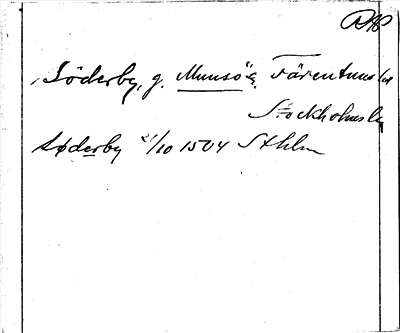 Söderby, g. Munsö s. Färentuna hd
Stockholms län
Søderby 21/10 1504 Sthlm